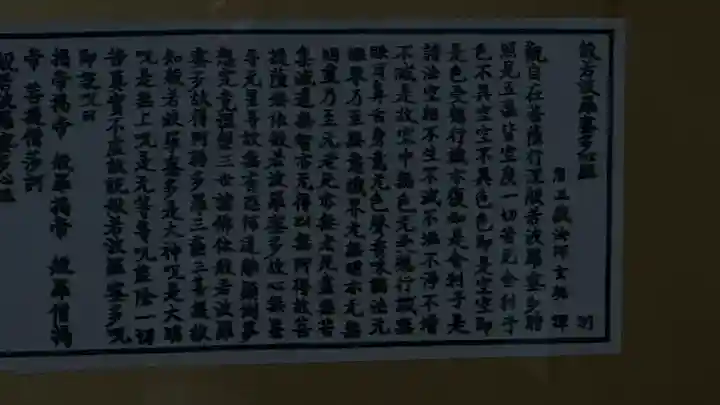 般若波羅蜜多心經
觀自在菩薩行深般若波羅蜜多時
照見五蘊皆空度一切苦厄舍利子
色不異空空不異色色即是空空即
是色受想行識亦復如是舍利子是
諸法空相不生不滅不垢不淨不增
不減是故空中無色无受想行識無
眼耳鼻舌身意无色聲香味觸法无
眼界乃至無意識界无無明亦无無
明盡乃至无老死亦無老死盡無苦
集滅道無智亦无得以無所得故菩
提薩埵依般若波羅蜜多故心無罣
礙无罣礙故無有恐怖遠離顛倒夢
想究竟涅槃三世諸佛依般若波羅
蜜多故得阿耨多羅三藐三菩提故
知般若波羅蜜多是大神咒是大明
咒是無上咒是无等等咒能除一切
苦真實不虛故說般若波羅蜜多咒
即說咒曰
揭帝揭帝 般羅揭帝 般羅僧揭
帝 菩提僧莎訶
般若波羅蜜多心經